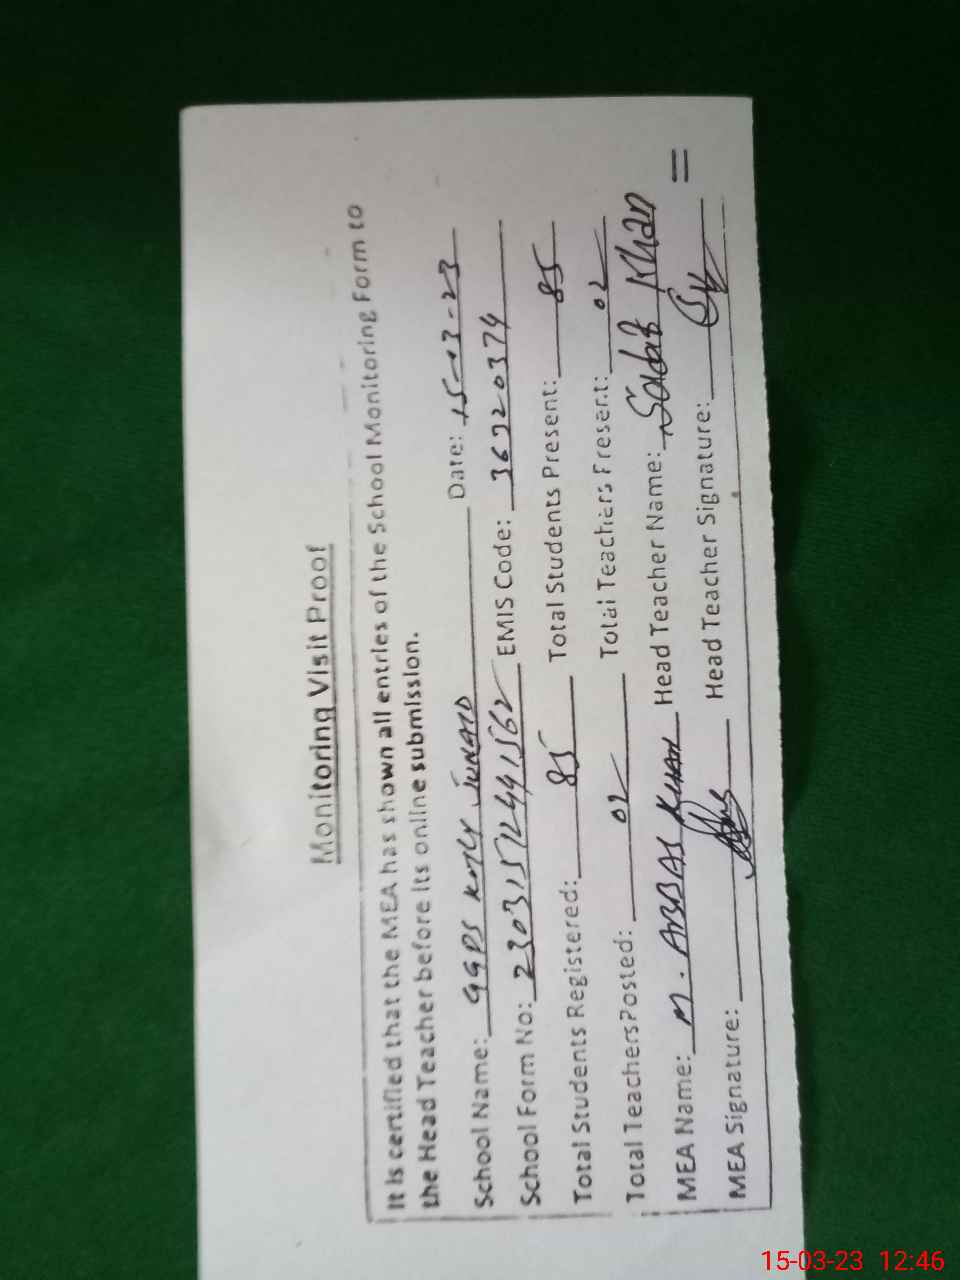 Monitoring Visit Proof
It is certified that the MEA has shown all entries of the School Monitoring Form to
the Head Teacher before its online submission.
School Name: GGPS KOTLY JUNAID Date: 15-03-23
School Form No: 230315124491562 EMIS Code: 36320374
Total Students Registered: 85 Total Students Present: 85
Total Teachers Posted: 02 Total Teachers Present: 02
MEA Name: M. ABBAS KHAN Head Teacher Name: Khan
MEA Signature: Head Teacher Signature:
15-03-23 12:46